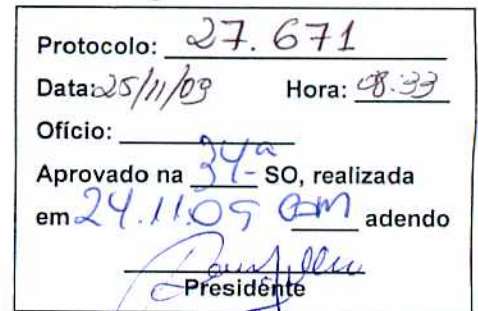 Protocolo: 27.671
Data: 25/11/09 Hora: 08:33
Ofício:
Aprovado na 34ª SO, realizada
em 24.11.09 com adendo
Presidente